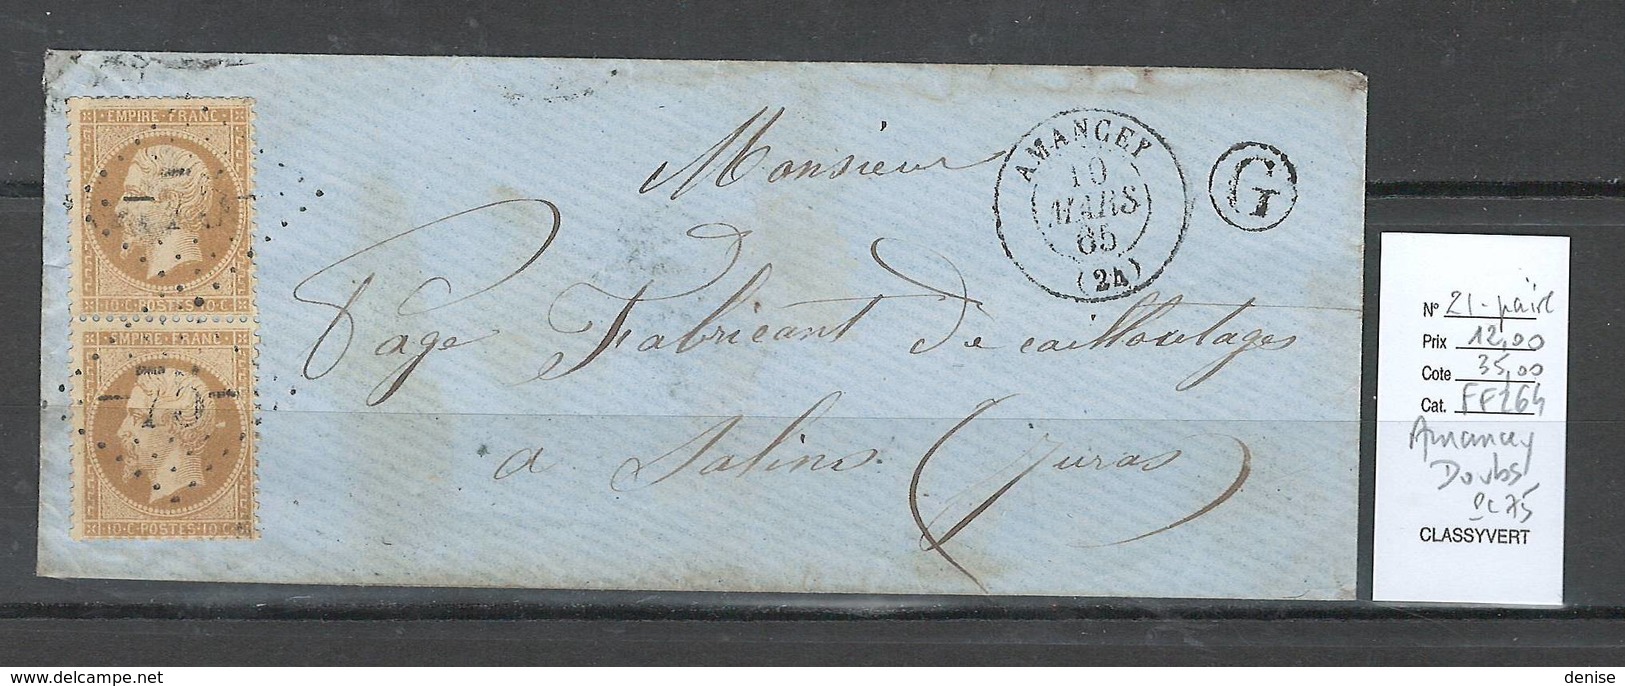 EMPIRE · FRANC ·
10·C·POSTES·10·C·
EMPIRE·FRANC·
·10·C·POSTES·10·C·
75
AMANCEY
10
MARS
65
(24)
G
Monsieur
Page Fabricant de cailloutages
a Salins (Juras)
N° 21 - paire
Prix 12,00
Cote 35,00
Cat. FF264
Amancey
Doubs
PC 75
CLASSYVERT
www.delcampe.net
denise